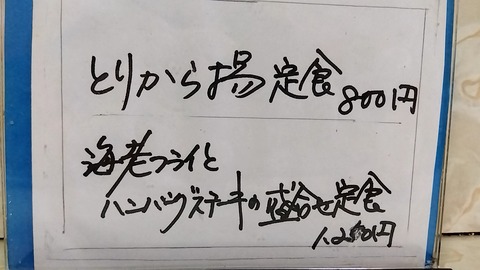 とりから揚定食 800円
海老フライと
ハンバーグステーキの盛合せ定食
1,250円